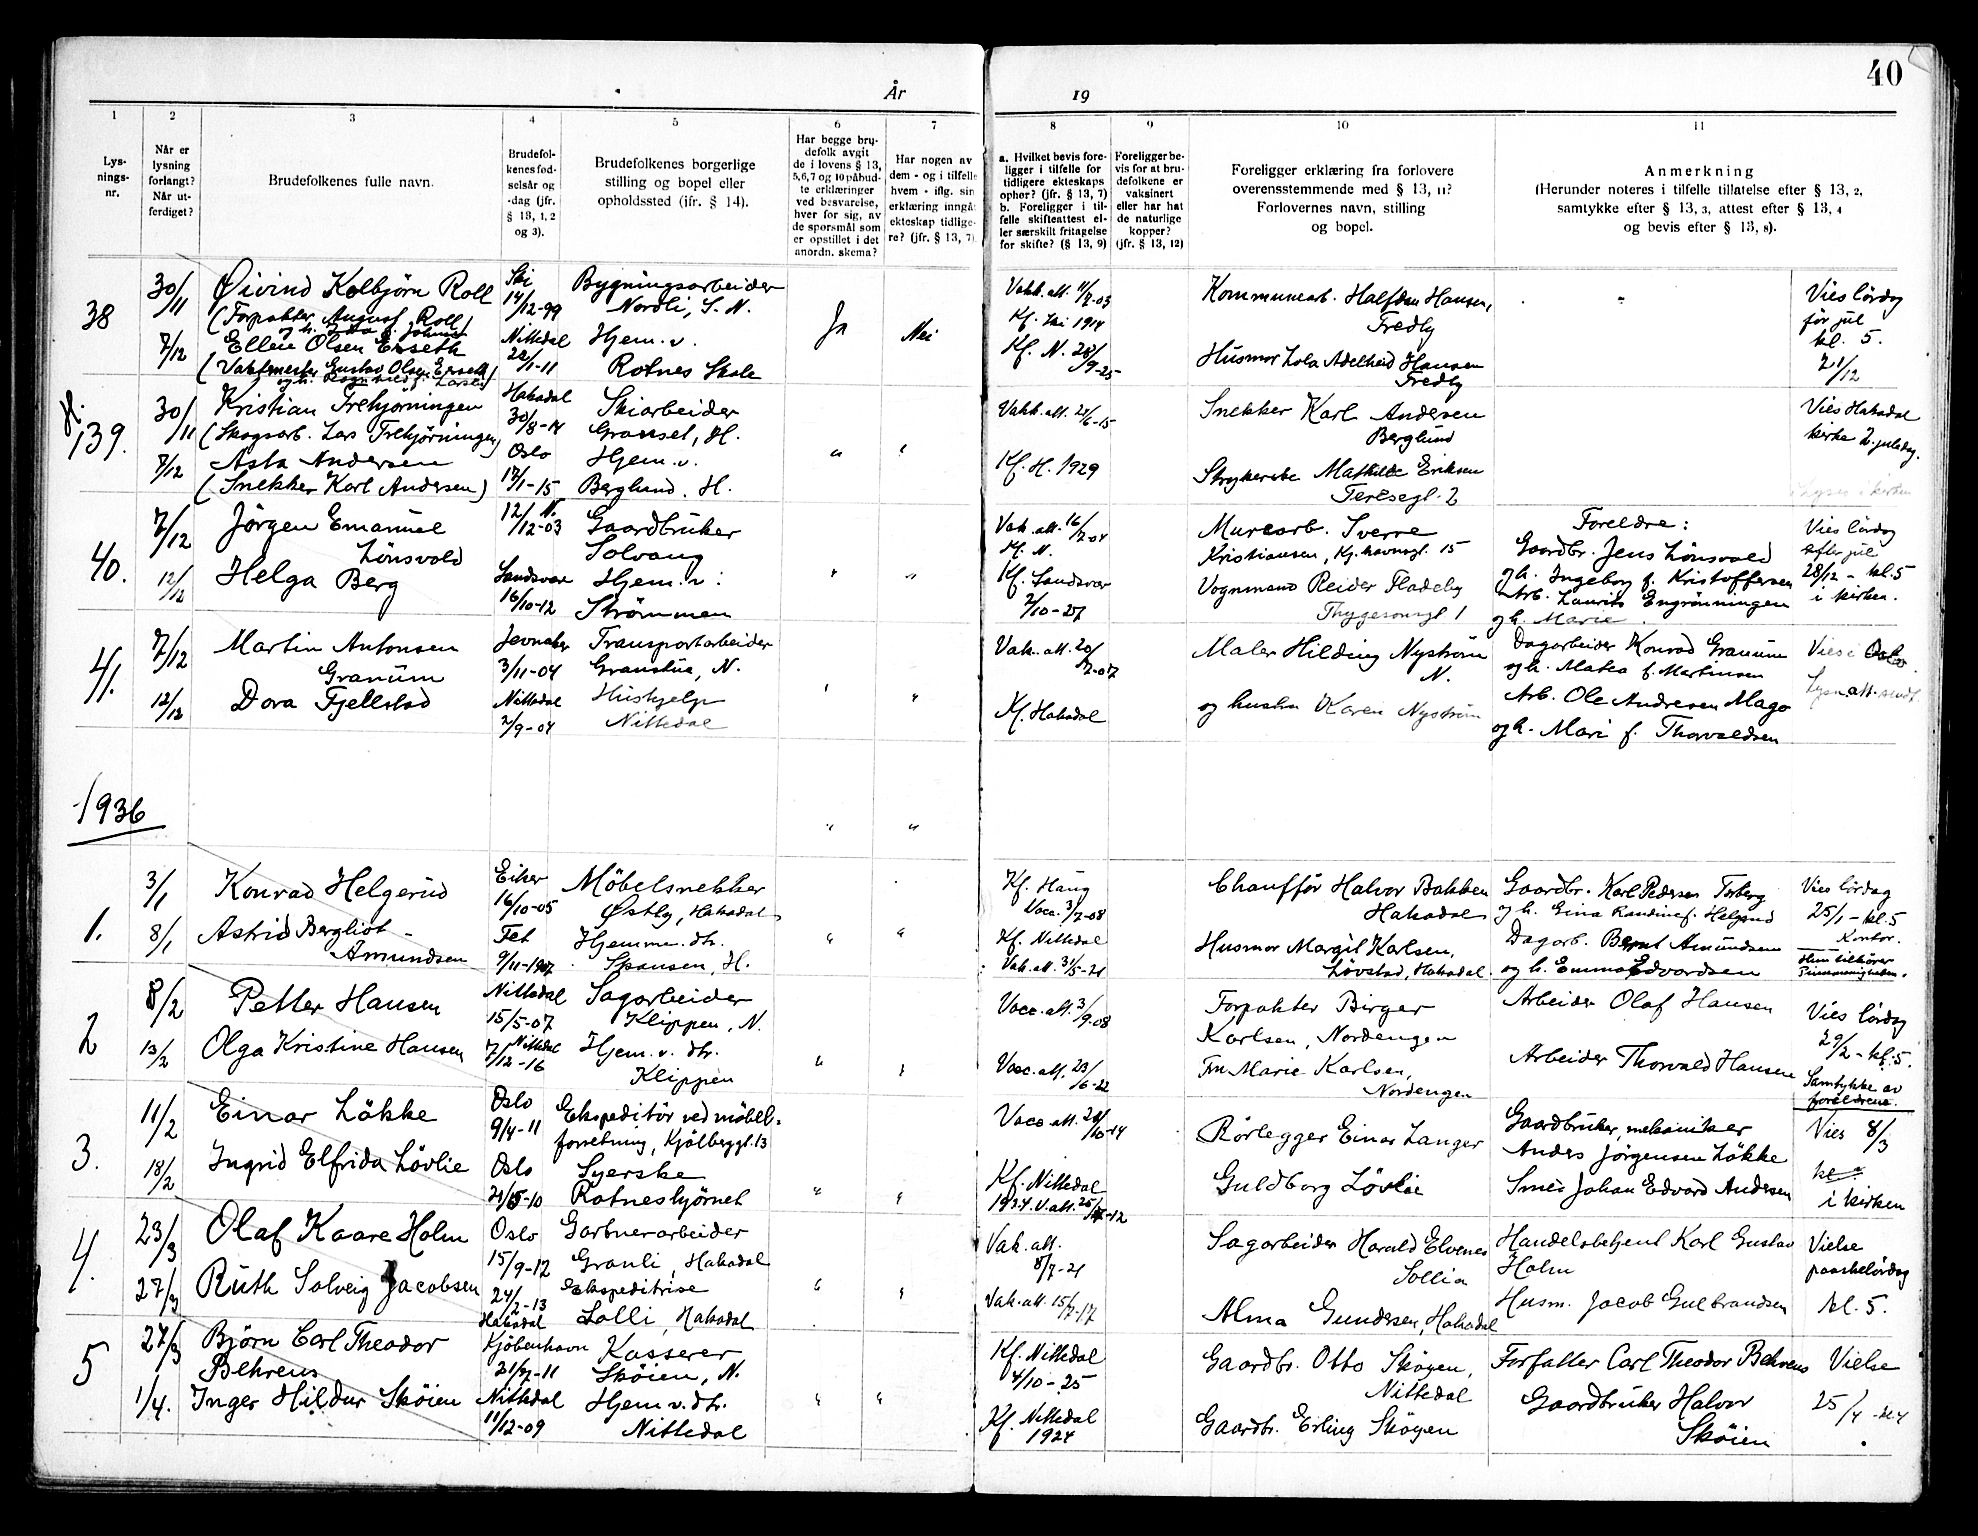 40
År 19
1
2
3
4
5
6
7
8
9
10
11
Lys-
nings-
nr.
Når er
lysning
forlangt?
Når ut-
ferdiget?
Brudefolkenes fulle navn.
Brudefol-
kenes fød-
selsår og
-dag (jfr.
§ 13, 1, 2
og 3).
Brudefolkenes borgerlige
stilling og bopel eller
opholdssted (jfr. § 14).
Har begge bru-
defolk avgit
de i lovens § 13,
5, 6, 7 og 10 påbud-
te erklæringer
ved besvarelse,
hver for sig, av
de spørsmål som
er opstillet i det
anordn. skema?
Har nogen av
dem - og i tilfelle
hvem - iflg. sin
erklæring inngåt
ekteskap tidlige-
re? (jfr. § 13, 7)
a. Hvilket bevis fore-
ligger i tilfelle for
tidligere ekteskaps
ophør? (jfr. § 13, 7)
b. Foreligger i til-
felle skifteattest el-
ler særskilt fritagelse
for skifte? (§ 13, 9)
Foreligger be-
vis for at bru-
defolkene er
vaksinert
eller har hat
de naturlige
kopper?
(jfr. § 13, 12)
Foreligger erklæring fra forlovere
overensstemmende med § 13, 11?
Forlovernes navn, stilling
og bopel.
Anmerkning
(Herunder noteres i tilfelle tillatelse efter § 13, 2,
samtykke efter § 13, 3, attest efter § 13, 4
og bevis efter § 13, 8).
38
30/11
7/12
Øivind Kolbjørn Roll
(Forpakter August Roll
Ellen Olsen Erseth
(Vaktmester Gustav Olsen Erseth
Ski
14/12-99
Nittedal
22/1-11
Bygningsarbeider
Nordli, S. N.
Hjem. v.
Rotnes Skole
Ja
Nei
Vakk. att. 11/7-03
Kf. Ski 1914
Kf. N. 28/9-25
Kommunearb. Halfdan Hansen,
Fredly
Husmor Lola Adelheid Hansen
Fredly
Vies lördag
før jul
kl. 5.
21/12
H.
139.
30/11
7/12
Kristian Trehjørningen
(Skogsarb. Lars Trehjørningen)
Asta Andersen
(Snekker Karl Andersen)
Hakadal
30/8-14
Oslo
17/1-15
Skiarbeider
Granset, H.
Hjem. v.
Berglund, H.
Vakk. att. 21/6-15
Kf. H. 1929
Snekker Karl Andersen
Berglund
Strykerske Mathilde Eriksen
Tertsegt. 2
Vies Hakadal
kirke 2. juledag.
40.
7/12
12/12
Jörgen Emanuel
Lönsvold
Helga Berg
12/12-03 N.
Sandsvær
16/10-12
Gaardbruker
Solvang
Hjem. v.
Strömmen
Vak. att. 16/7-04
Kf. N.
Kf. Sandsvær
2/10-27
Murearb. Sverre
Kristiansen, Kj.havnsgt. 15
Vognmand Reidar Fladeby
Thygesonsgt 1
Foreldre:
Gaardbr. Jens Lönsvold
og h. Ingeborg f. Kristoffersen
Arb. Laurits Engrönningen
og h. Marie.
Vies lördag
efter jul
28/12 - kl. 5
i kirken.
41.
7/12
12/12
Martin Antonsen
Granum
Dora Fjellstad
Jevnaker
3/11-04
Nittedal
2/9-04
Transportarbeider
Granstua, N.
Hushjelp
Nittedal
Vak. att. 20/7-07
Kf. Hakadal
Maler Hilding Nyström
N.
og hustru Karen Nyström
Dagarbeider Konrad Granum
og h. Matea f. Martinsen
Arb. Ole Andresen Mago
og h. Mari f. Thorvaldsen
Vies i Oslo
Lysn.att. sendt.
1936
1.
3/1
8/1
Konrad Helgerud
Astrid Bergliot
Amundsen
Eiker
16/10-05
Fet
9/11-1907
Möbelsnekker
Østby, Hakadal
Hjemmev. dtr.
Skansen, H.
Kf. Haug
Vacc. 3/7-08
Kf. Nittedal
Vak. att. 31/5-21
Chauffør Halvor Bakken
Hakadal
Husmor Margit Karlsen,
Lövstad, Hakadal
Gaardbr. Karl Pedersen Torberg
og h. Eina Randine f. Helgerud
Dagarb. Bernt Amundsen
og h. Emma Edvardsen
Vies lördag
25/1 - kl. 5
Kontor.
2
8/2
13/2
Petter Hansen
Olga Kristine Hansen
Nittedal
15/5-07
Nittedal
7/12-16
Sagarbeider
Klippen, N.
Hjem. v. dtr.
Klippen
Vacc. att. 3/9-08
Vacc. att. 23/6-22
Forpakter Birger
Karlsen, Nordengen
Fru Marie Karlsen,
Nordengen
Arbeider Olaf Hansen
Arbeider Thorvald Hansen
Vies lördag
29/2 - kl. 5.
Samtykke av
foreldrene.
3.
11/2
18/2
Einar Lökke
Ingrid Elfrida Lövlie
Oslo
9/4-11
Oslo
21/5-10
Ekspeditör ved möbel-
forretning, Kjölberggt. 13
Syerske
Rotneshjørnet
Vacc att. 24/10-14
Kf. Nittedal
1924 V. att. 25/4-12
Rörlegger Einar Langer
Guldborg Lövlie
Gaardbruker, mekaniker
Anders Jörgensen Lökke
Smed Johan Edvard Andersen
Vies 8/3
i kirken
4.
23/3
27/3
Olaf Kaare Holm
Ruth Solveig Jacobsen
Oslo
15/9-12
24/2-13
Hakadal
Gartnerarbeider
Granli, Hakadal
Ekspeditrise
Solli, Hakadal
Vak. att.
8/7-21
Vak. att. 15/7-17
Sagarbeider Harald Elvenes
Sollia
Alma Gundersen, Hakadal
Handelsbetjent Karl Gustav
Holm
Husm. Jacob Gulbrandsen
Vielse
paaskelördag
kl. 5.
5
27/3
1/4.
Björn Carl Theodor
Behrens
Inger Hildur Sköien
Kjöbenhavn
21/7-11
Nittedal
11/12-09
Kasserer
Sköien, N.
Hjem v. dtr.
Nittedal
Kf. Nittedal
4/10-25
Kf. Nittedal
1924
Gaardbr. Otto Skögen,
Nittedal
Gaardbr. Erling Skögen
Forfatter Carl Theodor Behrens
Gaardbruker Halvor
Sköien
Vielse
25/4 - kl 4